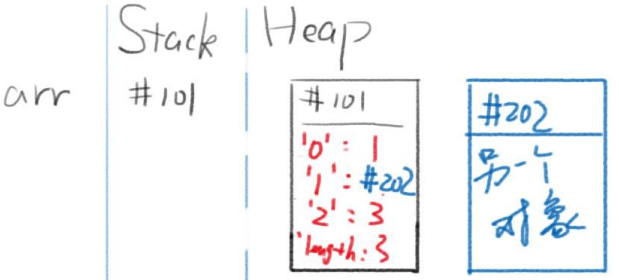 Stack Heap
arr #101
#101
'0': 1
'1': #202
'2': 3
'length: 3
#202
另一个
对象